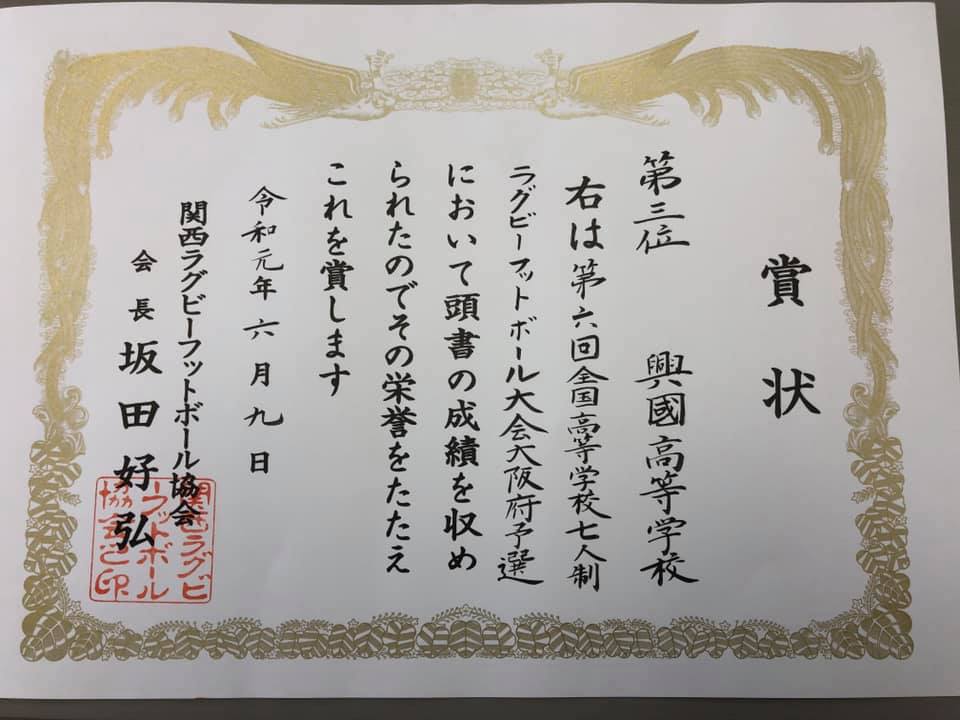 賞状
第三位 興國高等学校
右は第六回全国高等学校七人制
ラグビーフットボール大会大阪府予選
において頭書の成績を収め
られたのでその栄誉をたたえ
これを賞します
令和元年六月九日
関西ラグビーフットボール協会
会長 坂田好弘
関西ラグビ
ーフットボール
協会之印